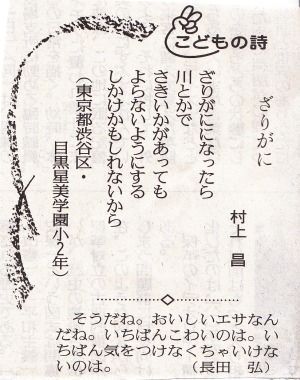 こどもの詩
ざりがに
村上　昌
ざりがにになったら
川とかで
さきいかがあっても
よらないようにする
しかけかもしれないから
（東京都渋谷区・
目黒星美学園小２年）
そうだね。おいしいエサなん
だね。いちばんこわいのは。い
ちばん気をつけなくちゃいけな
いのは。　　　（長田　弘）